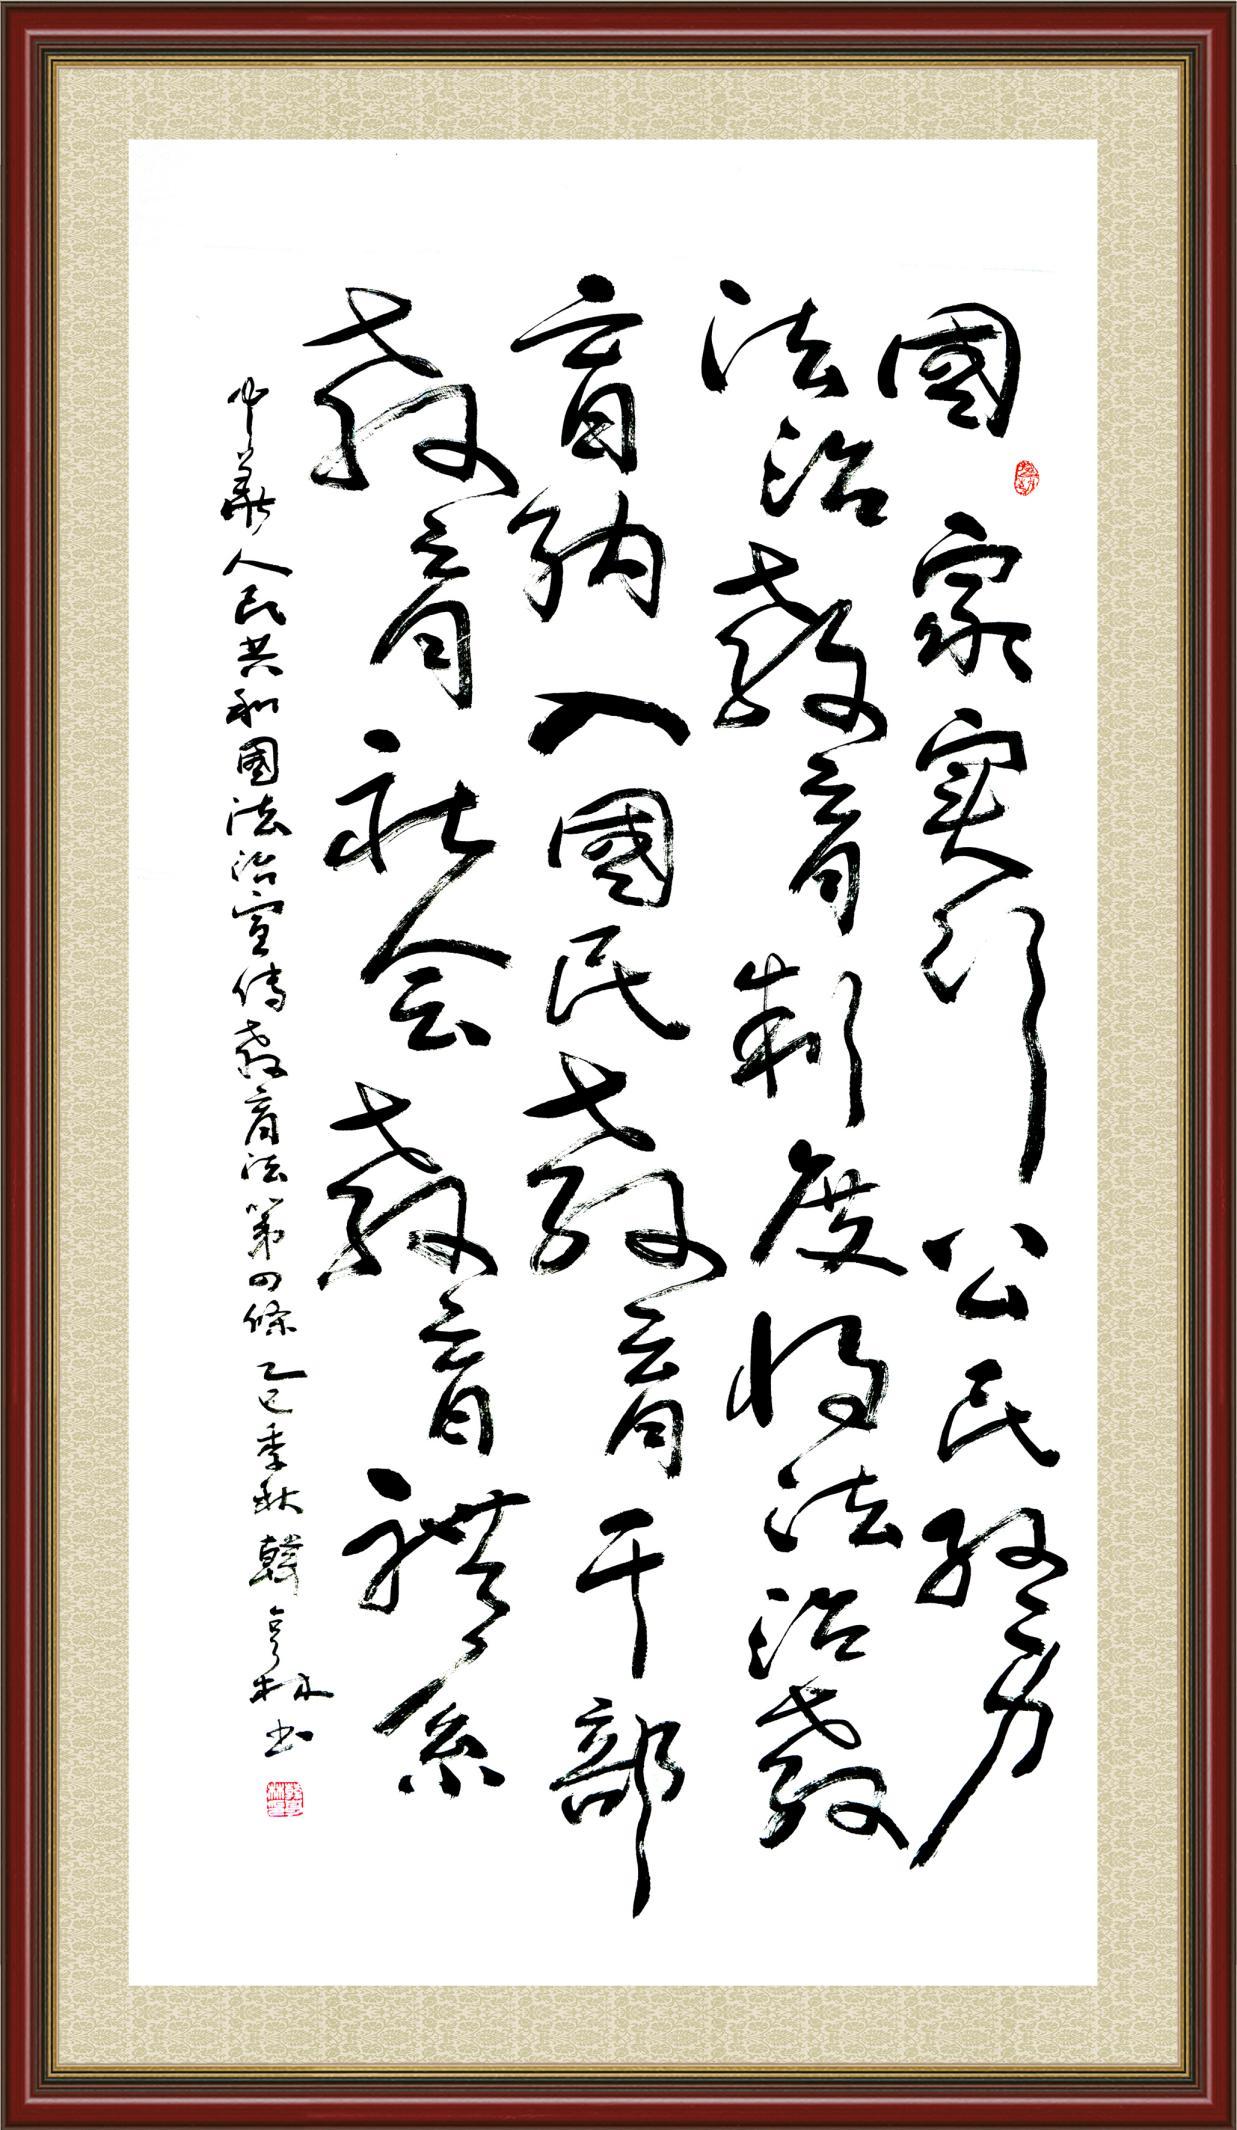 國家实行公民终身
法治教育制度将法治教
育纳入國民教育干部
教育社会教育體系
中华人民共和國法治宣传教育法第四條 乙巳季秋 韓亨林书